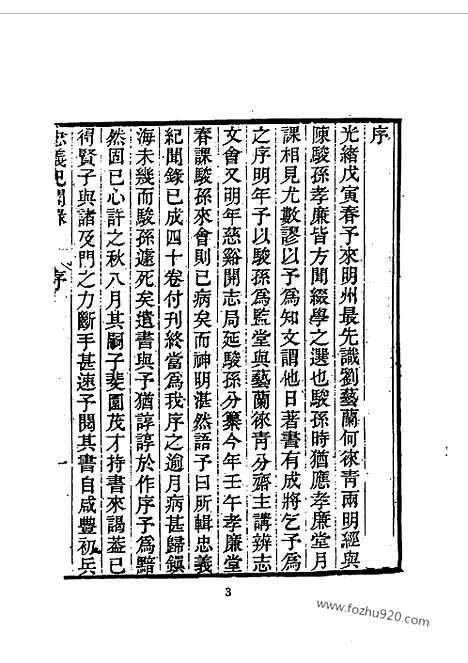 序
光緒戊寅春予來明州最先識劉藝蘭何徠青兩明經與
陳駿孫孝廉皆方聞綴學之選也駿孫時猶應孝廉堂月
課相見尤數謬以予為知文謂他日著書有成將乞予為
之序明年予以駿孫為監堂與藝蘭徠青分齋主講辨志
文會又明年慈谿開志局延駿孫分纂今年壬午孝廉堂
春課駿孫來會則已病矣而神明湛然語予曰所輯忠義
紀聞錄已成四十卷付刊終當為我序之逾月病甚歸鎭
海未幾而駿孫遽死矣遺書與予猶諄諄於作序予為黯
然固已心許之秋八月其嗣子斐園茂才持書來謁葢已
得賢子與諸及門之力斷手甚速予閱其書自咸豐初兵
忠義紀聞錄 序 一
3
www.fozhu920.com